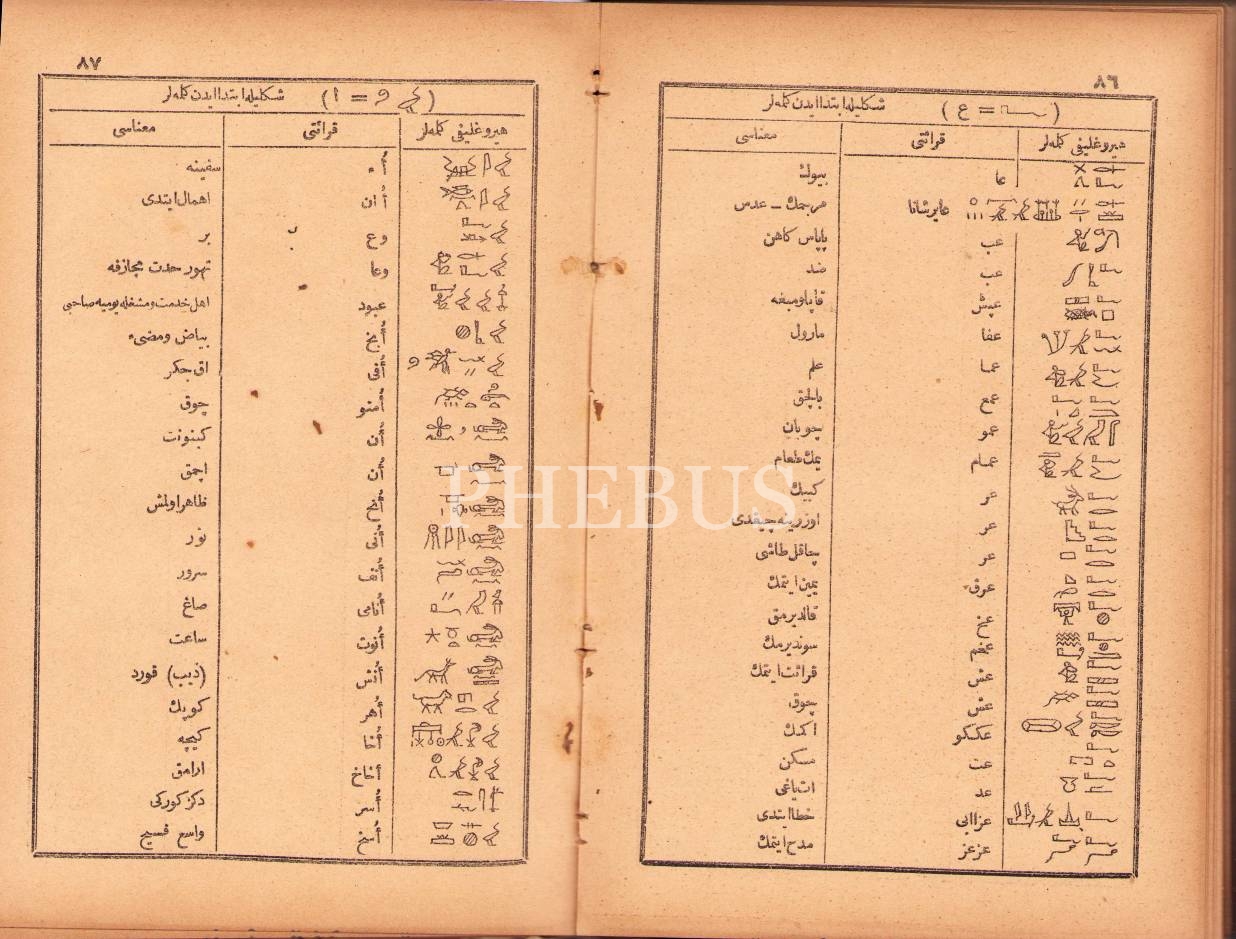 ٨٦
( = ع ) شكليله ابتدا ايدن كلمه‌لر
هيروغليفى كلمه‌لر قرائتى معناسى
عا بيوك
عابرشانا هربمك ـ عدس
عب پاپاس كاهن
عب ضد
عپش قاپلومبغه
عفا مارول
عما علم
عمع بالچق
عمو چوبان
عمام يمك طعام
عر كييك
عر اوزرينه چيقدى
عر چاقل طاشى
عرق يمين ايتمك
عخ قالديرمق
عخم سوندیرمك
عش قرائت ايتمك
عش چوق
عككو اكمك
عت مسكن
عد ات ياغى
عزاابى خطا ايتدى
عزعز مدح ايتمك
٨٧
( و = ا ) شكليله ابتدا ايدن كلمه‌لر
هيروغليفى كلمه‌لر قرائتى معناسى
أء سفينه
أ ان اهمال ايتدى
وع بر
وعا تهور حدت مجازفه
عبود اهل خدمت ومشغله يوميه صاحبى
أبخ بياض ومضىء
أفى اق جكر
أمتو چوق
أن كينونت
أن اچمق
أنخ ظاهر اولمش
أنى نور
أنف سرور
أنامى صاغ
أنوت ساعت
أنش (ذيب) قورد
أهر كوپك
أخا كيجه
أخاخ ارامق
أسر دكز كوركى
أسخ واسع فسيح
PHEBUS